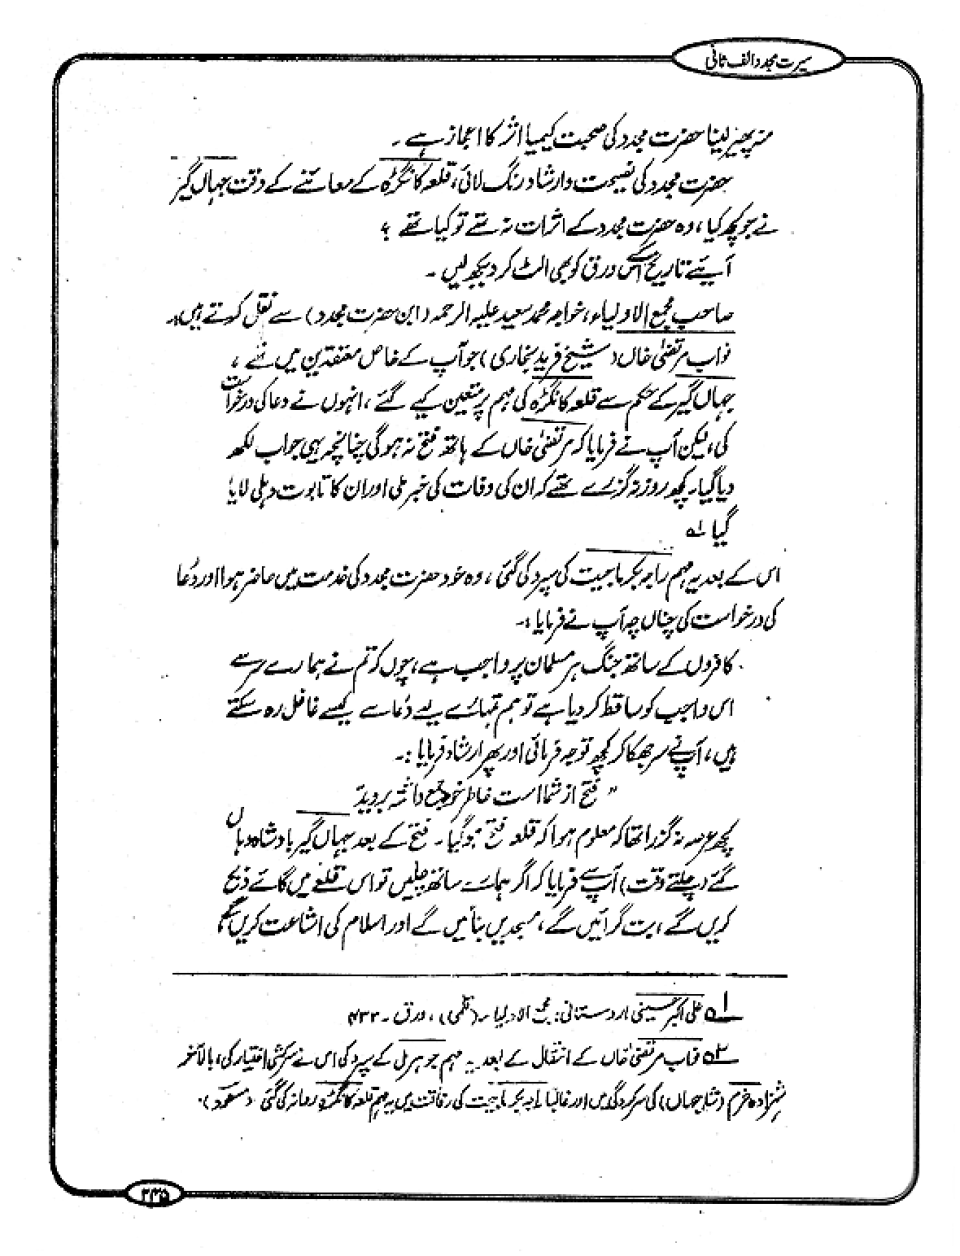 سیرت مجدد الف ثانی
منہ پھیر لینا حضرت مجدد کی صحبت کیمیا اثر کا اعجاز ہے ۔
حضرت مجدد کی نصیحت و ارشاد رنگ لائی، قلعہ کانگڑہ کے معائنے کے وقت جہاں گیر
نے جو کچھ کیا، وہ حضرت مجدد کے اثرات نہ تھے تو کیا تھے ؟
آیئے تاریخ کے اس ورق کو بھی الٹ کر دیکھ لیں ۔
صاحب مجمع الاولیاء، خواجہ محمد سعید علیہ الرحمہ (ابن حضرت مجدد) سے نقل کرتے ہیں:۔
نواب مرتضیٰ خاں (شیخ فرید بخاری) جو آپ کے خاص معتقدین میں تھے ،
جہاں گیر کے حکم سے قلعہ کانگڑہ کی مہم پر متعین کیے گئے ، انہوں نے دعا کی درخواست
کی، لیکن آپ نے فرمایا کہ مرتضیٰ خاں کے ہاتھ فتح نہ ہو گی چنانچہ یہی جواب لکھ
دیا گیا۔ کچھ روز نہ گزرے تھے کہ ان کی وفات کی خبر ملی اور ان کا تابوت دہلی لایا
گیا ۱؎
اس کے بعد یہ مہم راجہ بکرماجیت کی سپرد کی گئی ، وہ خود حضرت مجدد کی خدمت میں حاضر ہوا اور دُعا
کی درخواست کی چناں چہ آپ نے فرمایا :۔
کافروں کے ساتھ جنگ ہر مسلمان پر واجب ہے، چوں کہ تم نے ہمارے سر سے
اس واجب کو ساقط کر دیا ہے تو ہم تمہارے لیے دُعا سے کیسے غافل رہ سکتے
ہیں، آپ نے سر جھکا کر کچھ توجہ فرمائی اور پھر ارشاد فرمایا :۔
" فتح از شما است خاطر خود جمع داشتہ بروید
کچھ عرصہ نہ گزرا تھا کہ معلوم ہوا کہ قلعہ فتح ہو گیا ۔ فتح کے بعد جہاں گیر بادشاہ وہاں
گئے (چلتے وقت) آپ سے فرمایا کہ اگر ہمارے ساتھ چلیں تو اس قلعے میں گائے ذبح
کریں گے، بت گرائیں گے، مسجدیں بنائیں گے اور اسلام کی اشاعت کریں گے
۱؎ علی اکبر حسینی اردستانی: مجمع الاولیا ۔ (قلمی) ، ورق ۔ ۴۳۲
۲؎ نواب مرتضیٰ خاں کے انتقال کے بعد یہ مہم جوہر مل کے سپرد کی اس نے سرکشی اختیار کی، بالآخر
شہزادہ خرم (شاہ جہاں) کی سرکردگی میں اور غالباً راجہ بکرماجیت کی رفاقت میں یہ مہم قلعہ کانگڑہ روانہ کی گئی (مسعود)۔
۲۳۵